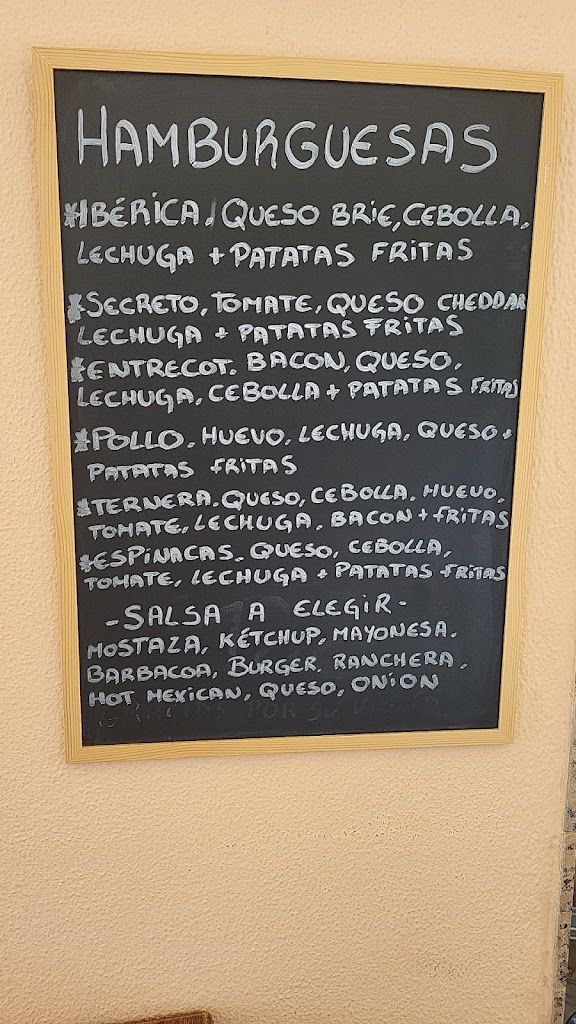 HAMBURGUESAS
*IBÉRICA. QUESO BRIE, CEBOLLA,
LECHUGA + PATATAS FRITAS
*SECRETO, TOMATE, QUESO CHEDDAR
LECHUGA + PATATAS FRITAS
*ENTRECOT. BACON, QUESO,
LECHUGA, CEBOLLA + PATATAS FRITAS
*POLLO. HUEVO, LECHUGA, QUESO +
PATATAS FRITAS
*TERNERA. QUESO, CEBOLLA. HUEVO,
TOMATE, LECHUGA. BACON + FRITAS
*ESPINACAS. QUESO, CEBOLLA,
TOMATE, LECHUGA + PATATAS FRITAS
-SALSA A ELEGIR-
MOSTAZA, KÉTCHUP, MAYONESA.
BARBACOA, BURGER, RANCHERA,
HOT MEXICAN, QUESO, ONION
POR SU